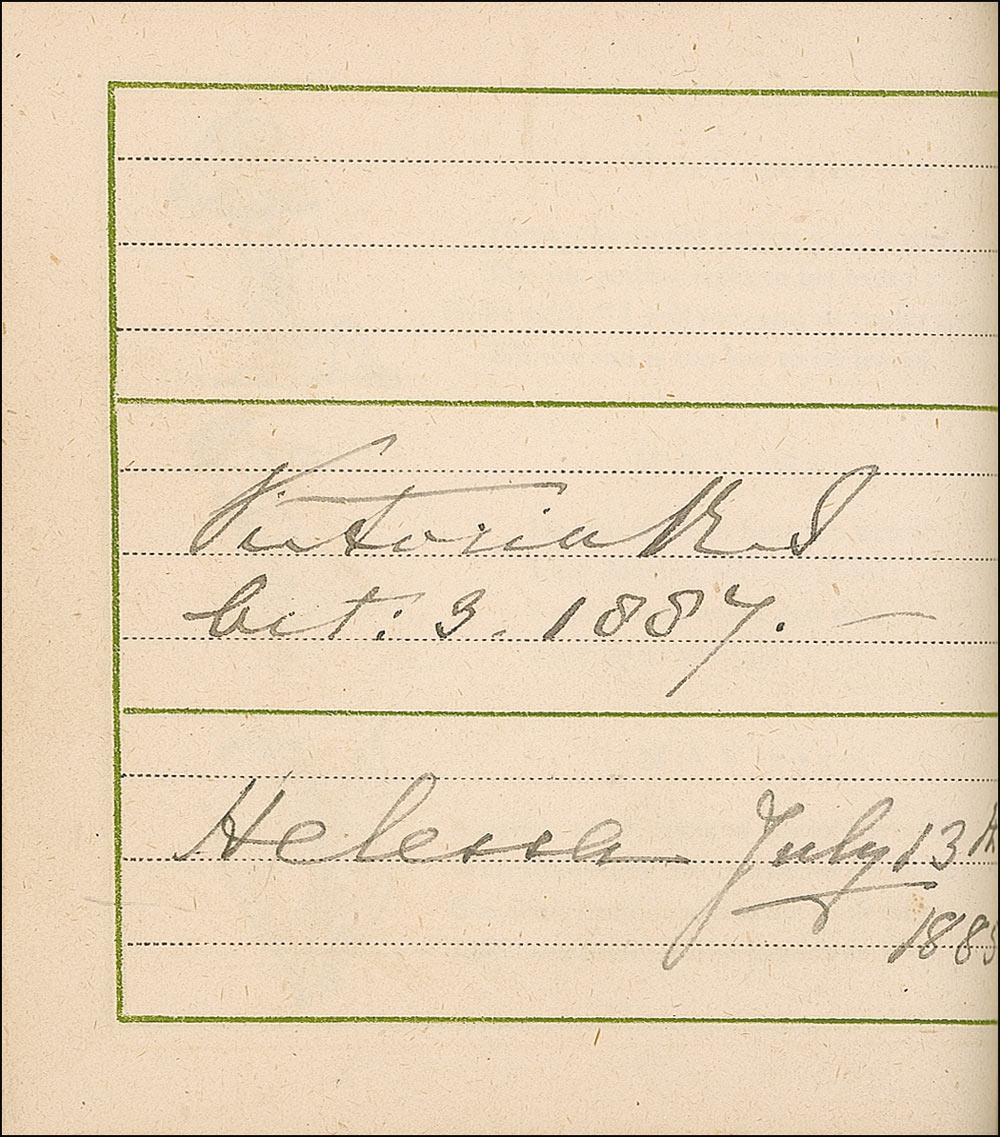 Victoria R.I
Oct: 3. 1887. —
Helena July 13th